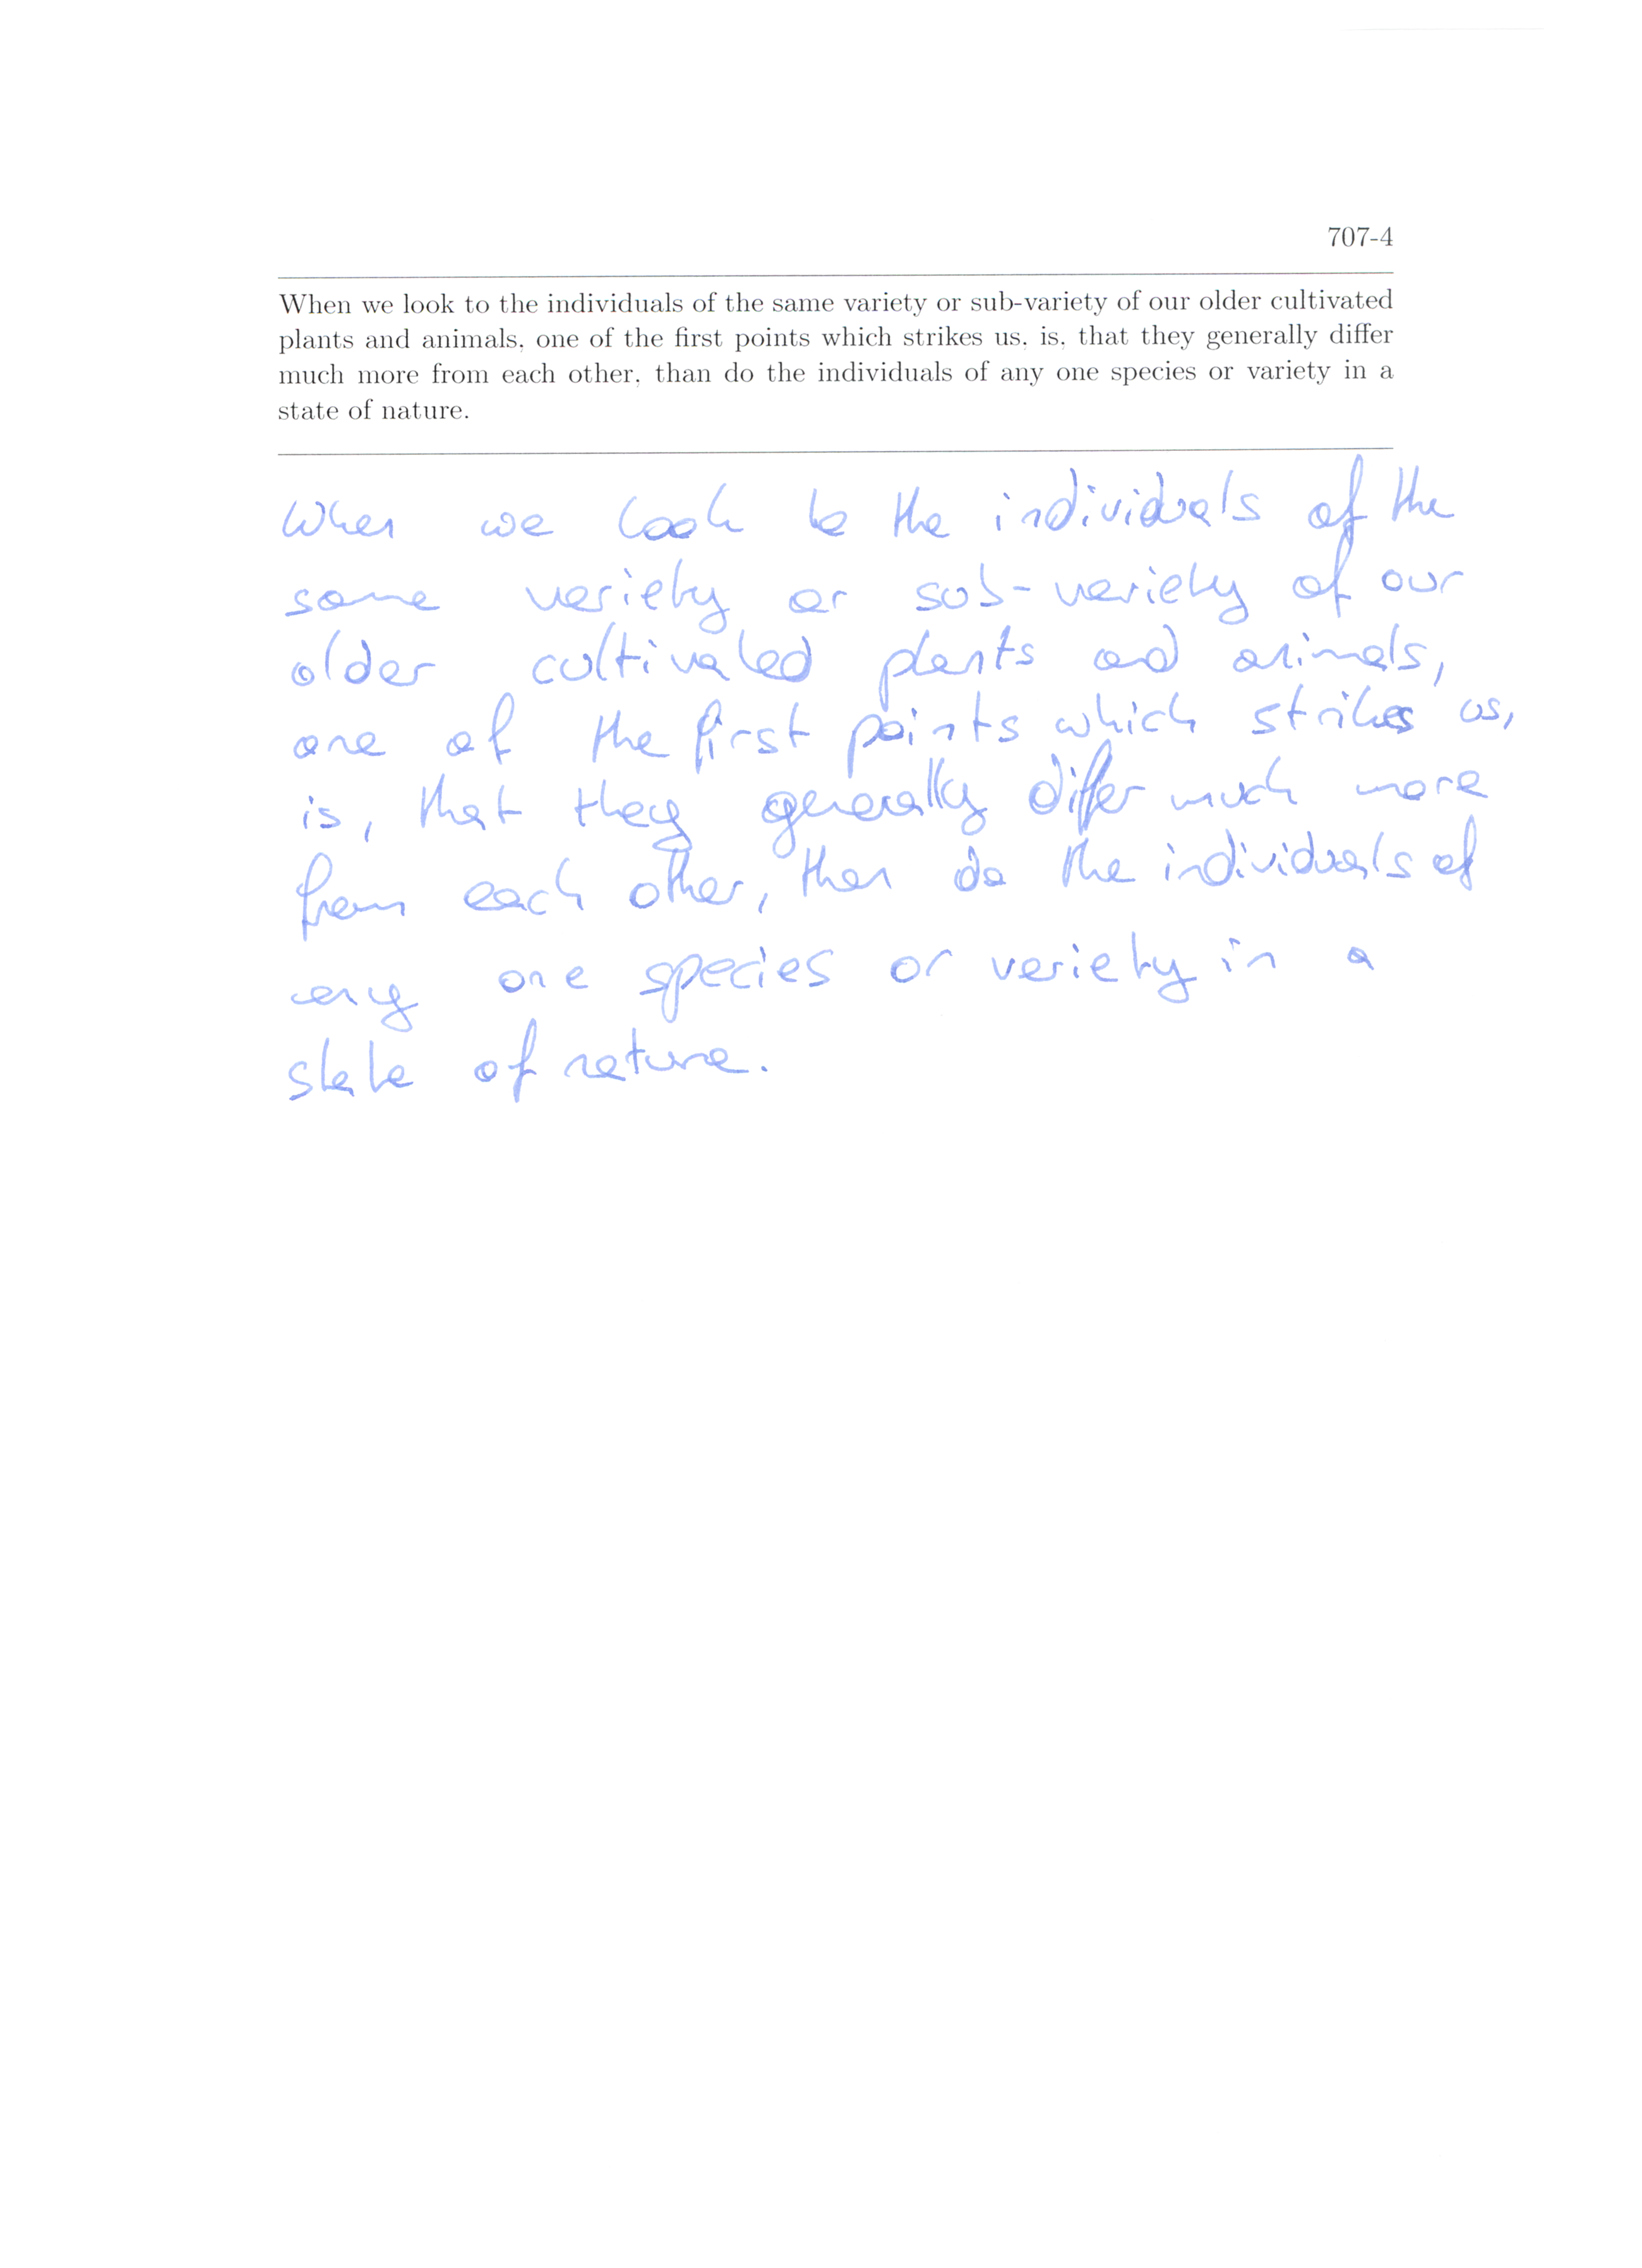 707-4
When we look to the individuals of the same variety or sub-variety of our older cultivated
plants and animals, one of the first points which strikes us, is, that they generally differ
much more from each other, than do the individuals of any one species or variety in a
state of nature.
When we look to the individuals of the
same variety or sub-variety of our
older cultivated plants and animals,
one of the first points which strikes us,
is, that they generally differ much more
from each other, than do the individuals of
any one species or variety in a
state of nature.